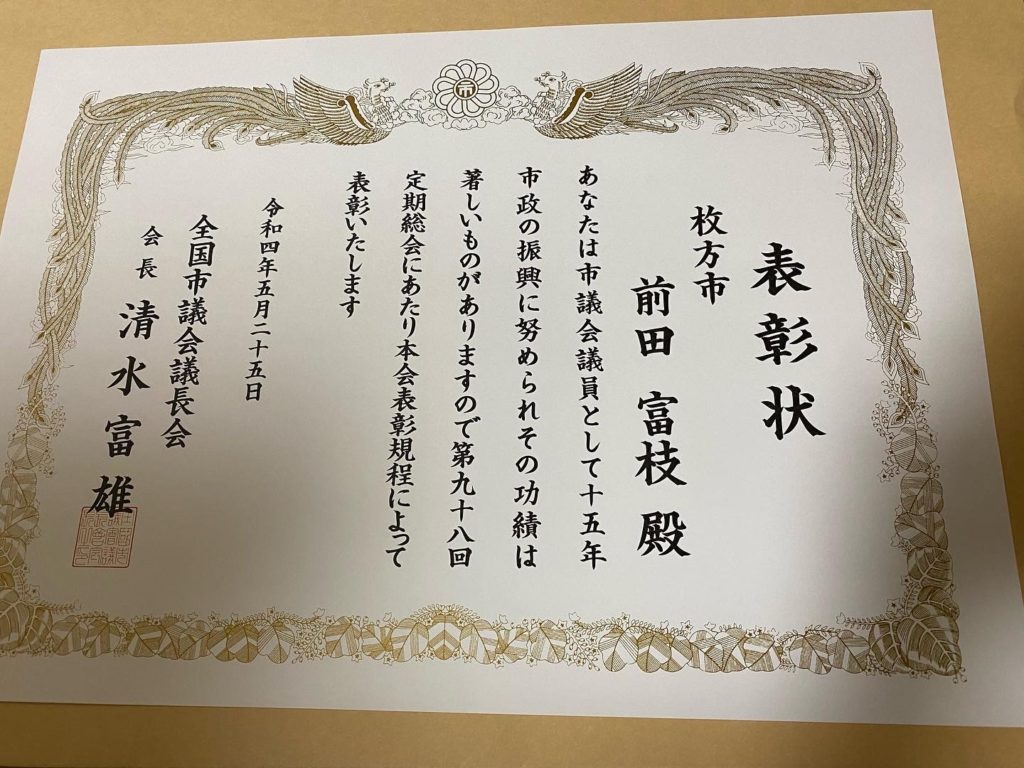 表彰状
枚方市
前田 富枝 殿
あなたは市議会議員として十五年
市政の振興に努められその功績は
著しいものがありますので第九十八回
定期総会にあたり本会表彰規程によって
表彰いたします
令和四年五月二十五日
全国市議会議長会
会長 清水富雄